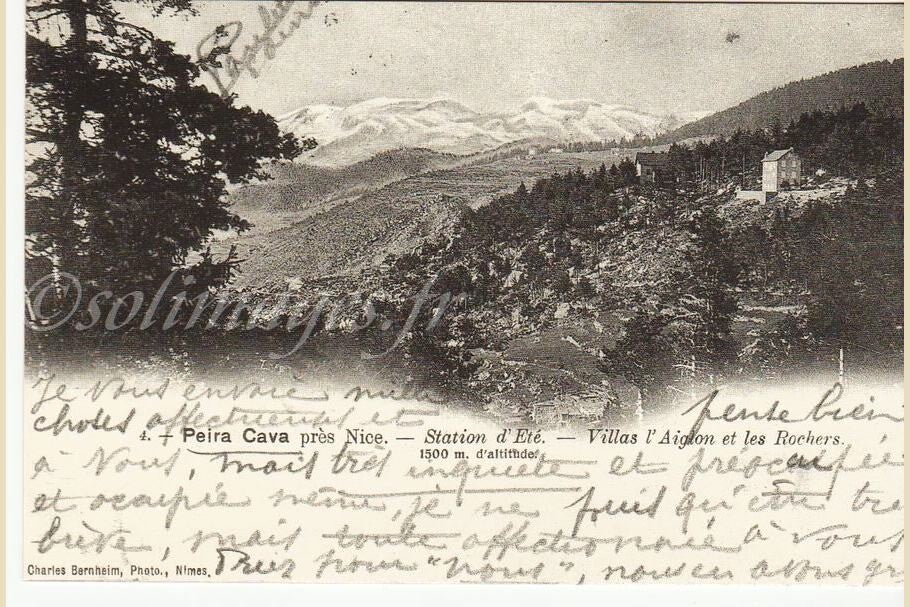 ©solimages.fr
Je vous envoie mille
choses affectueuses et
pense bien
4. - Peira Cava près Nice. — Station d'Eté. — Villas l'Aiglon et les Rochers.
1500 m. d'altitude.
à vous, mais très inquiète et préoccupée
et occupée même, je ne puis qu'être très
brève, mais toute affectionnée à vous
Charles Bernheim, Photo., Nimes.
Priez pour "nous", nous en avons